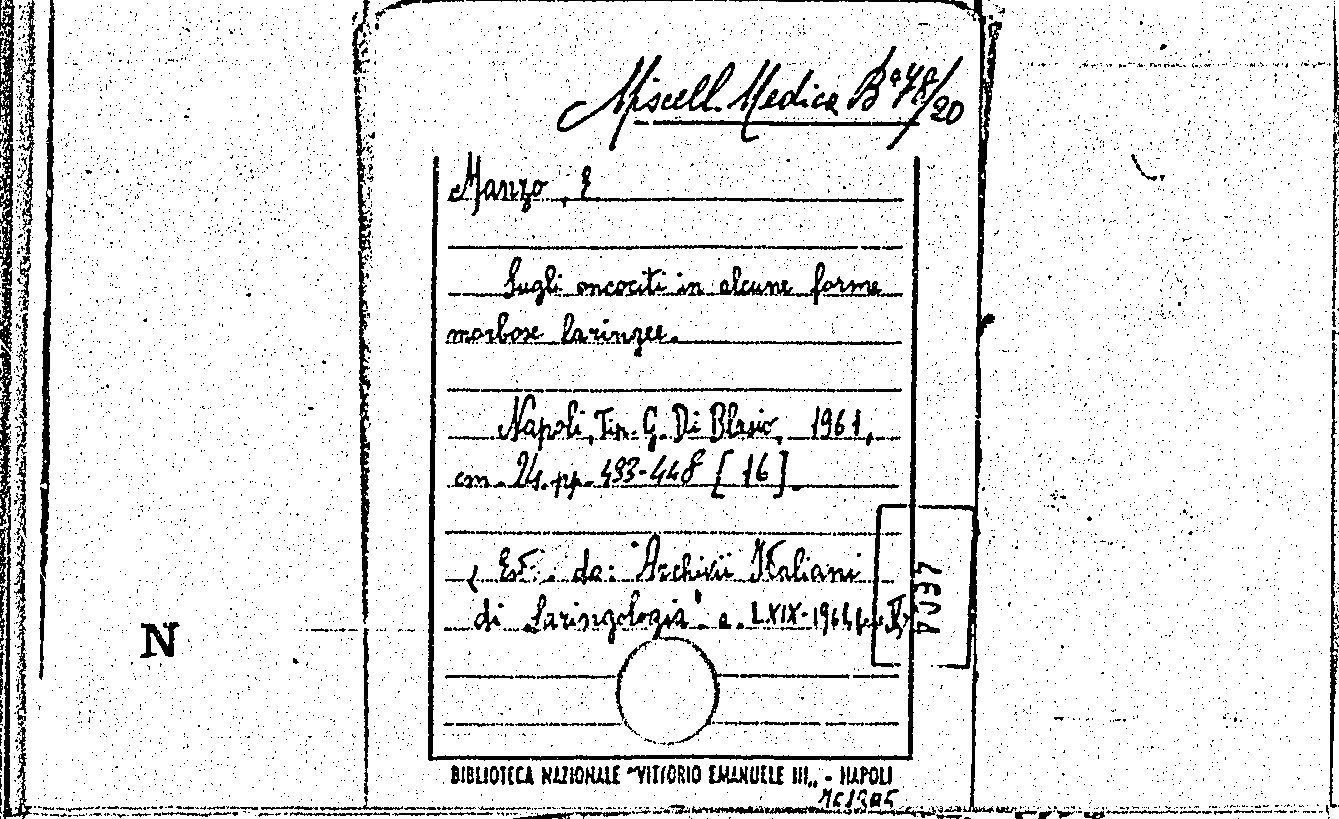 Miscell. Medica Bª 78/20
Manzo, E.
Sugli oncociti in alcune forme
morbose laringee.
Napoli, Tip. G. Di Blasio, 1961,
cm. 24. pp. 433-448 [16].
(Est. da: "Archivii Italiani
di Laringologia". a. LXIX-1961,
N
BIBLIOTECA NAZIONALE "VITTORIO EMANUELE III„ - NAPOLI